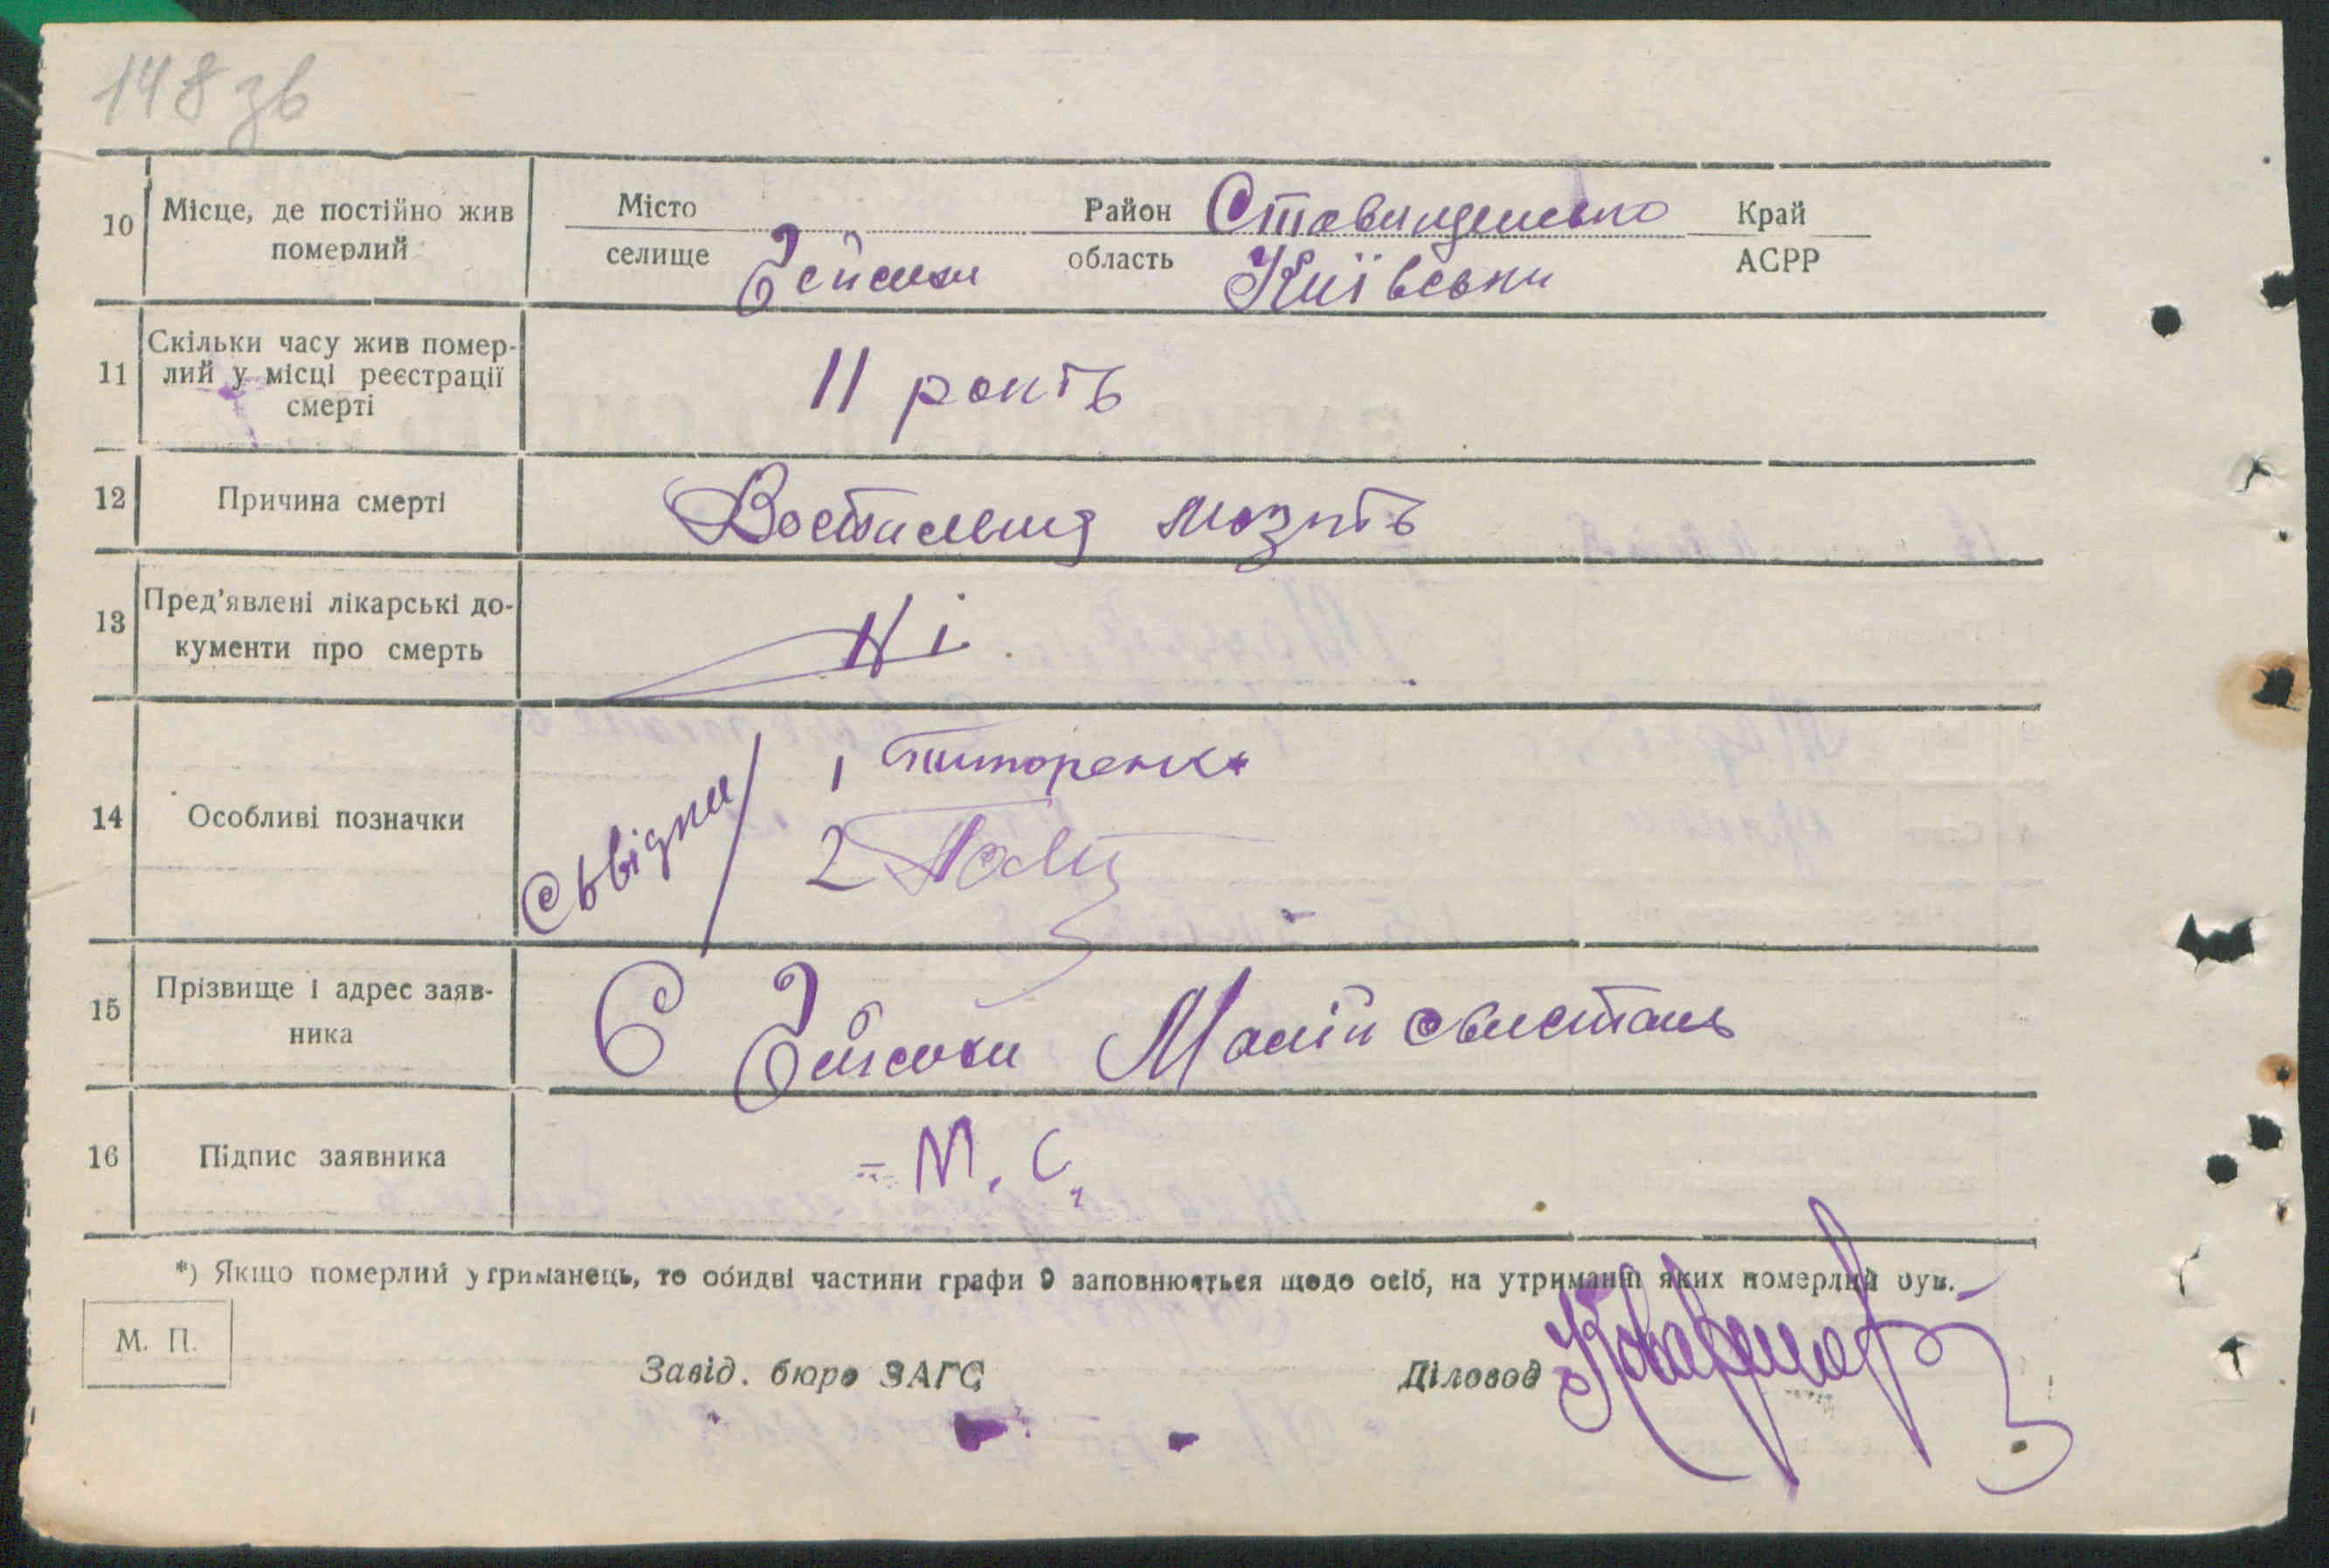 148 зв
10 Місце, де постійно жив померлий
Місто
селище
Район Ставищенсько
область Київськи
Край
АСРР
11 Скільки часу жив помер-
лий у місці реєстрації
смерті
11 роить
12 Причина смерті
Воспаления
13 Пред'явлені лікарські до-
кументи про смерть
Ні
14 Особливі позначки
Сьвідки / 1 Титоренк
2
15 Прізвище і адрес заяв-
ника
С
16 Підпис заявника
= М. С.
*) Якщо померлий утриманець, то обидві частини графи 9 заповнюються щодо осіб, на утриманні яких померлий був.
М. П.
Завід. бюро ЗАГС
Діловод